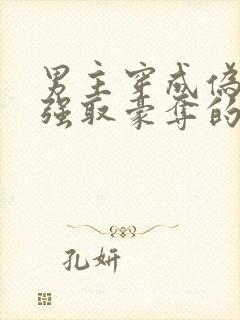 男主穿成偽
強取豪奪的
孔妍